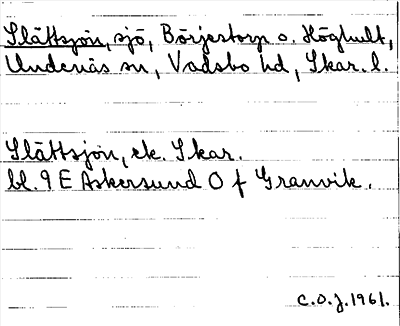 Slättsjön, sjö, Börjestorp o. Höghult,
Undenäs sn, Vadsbo hd, Skar. l.
Slättsjön, ek. Skar.
bl. 9 E Askersund O f Granvik.
C.O.J. 1961.